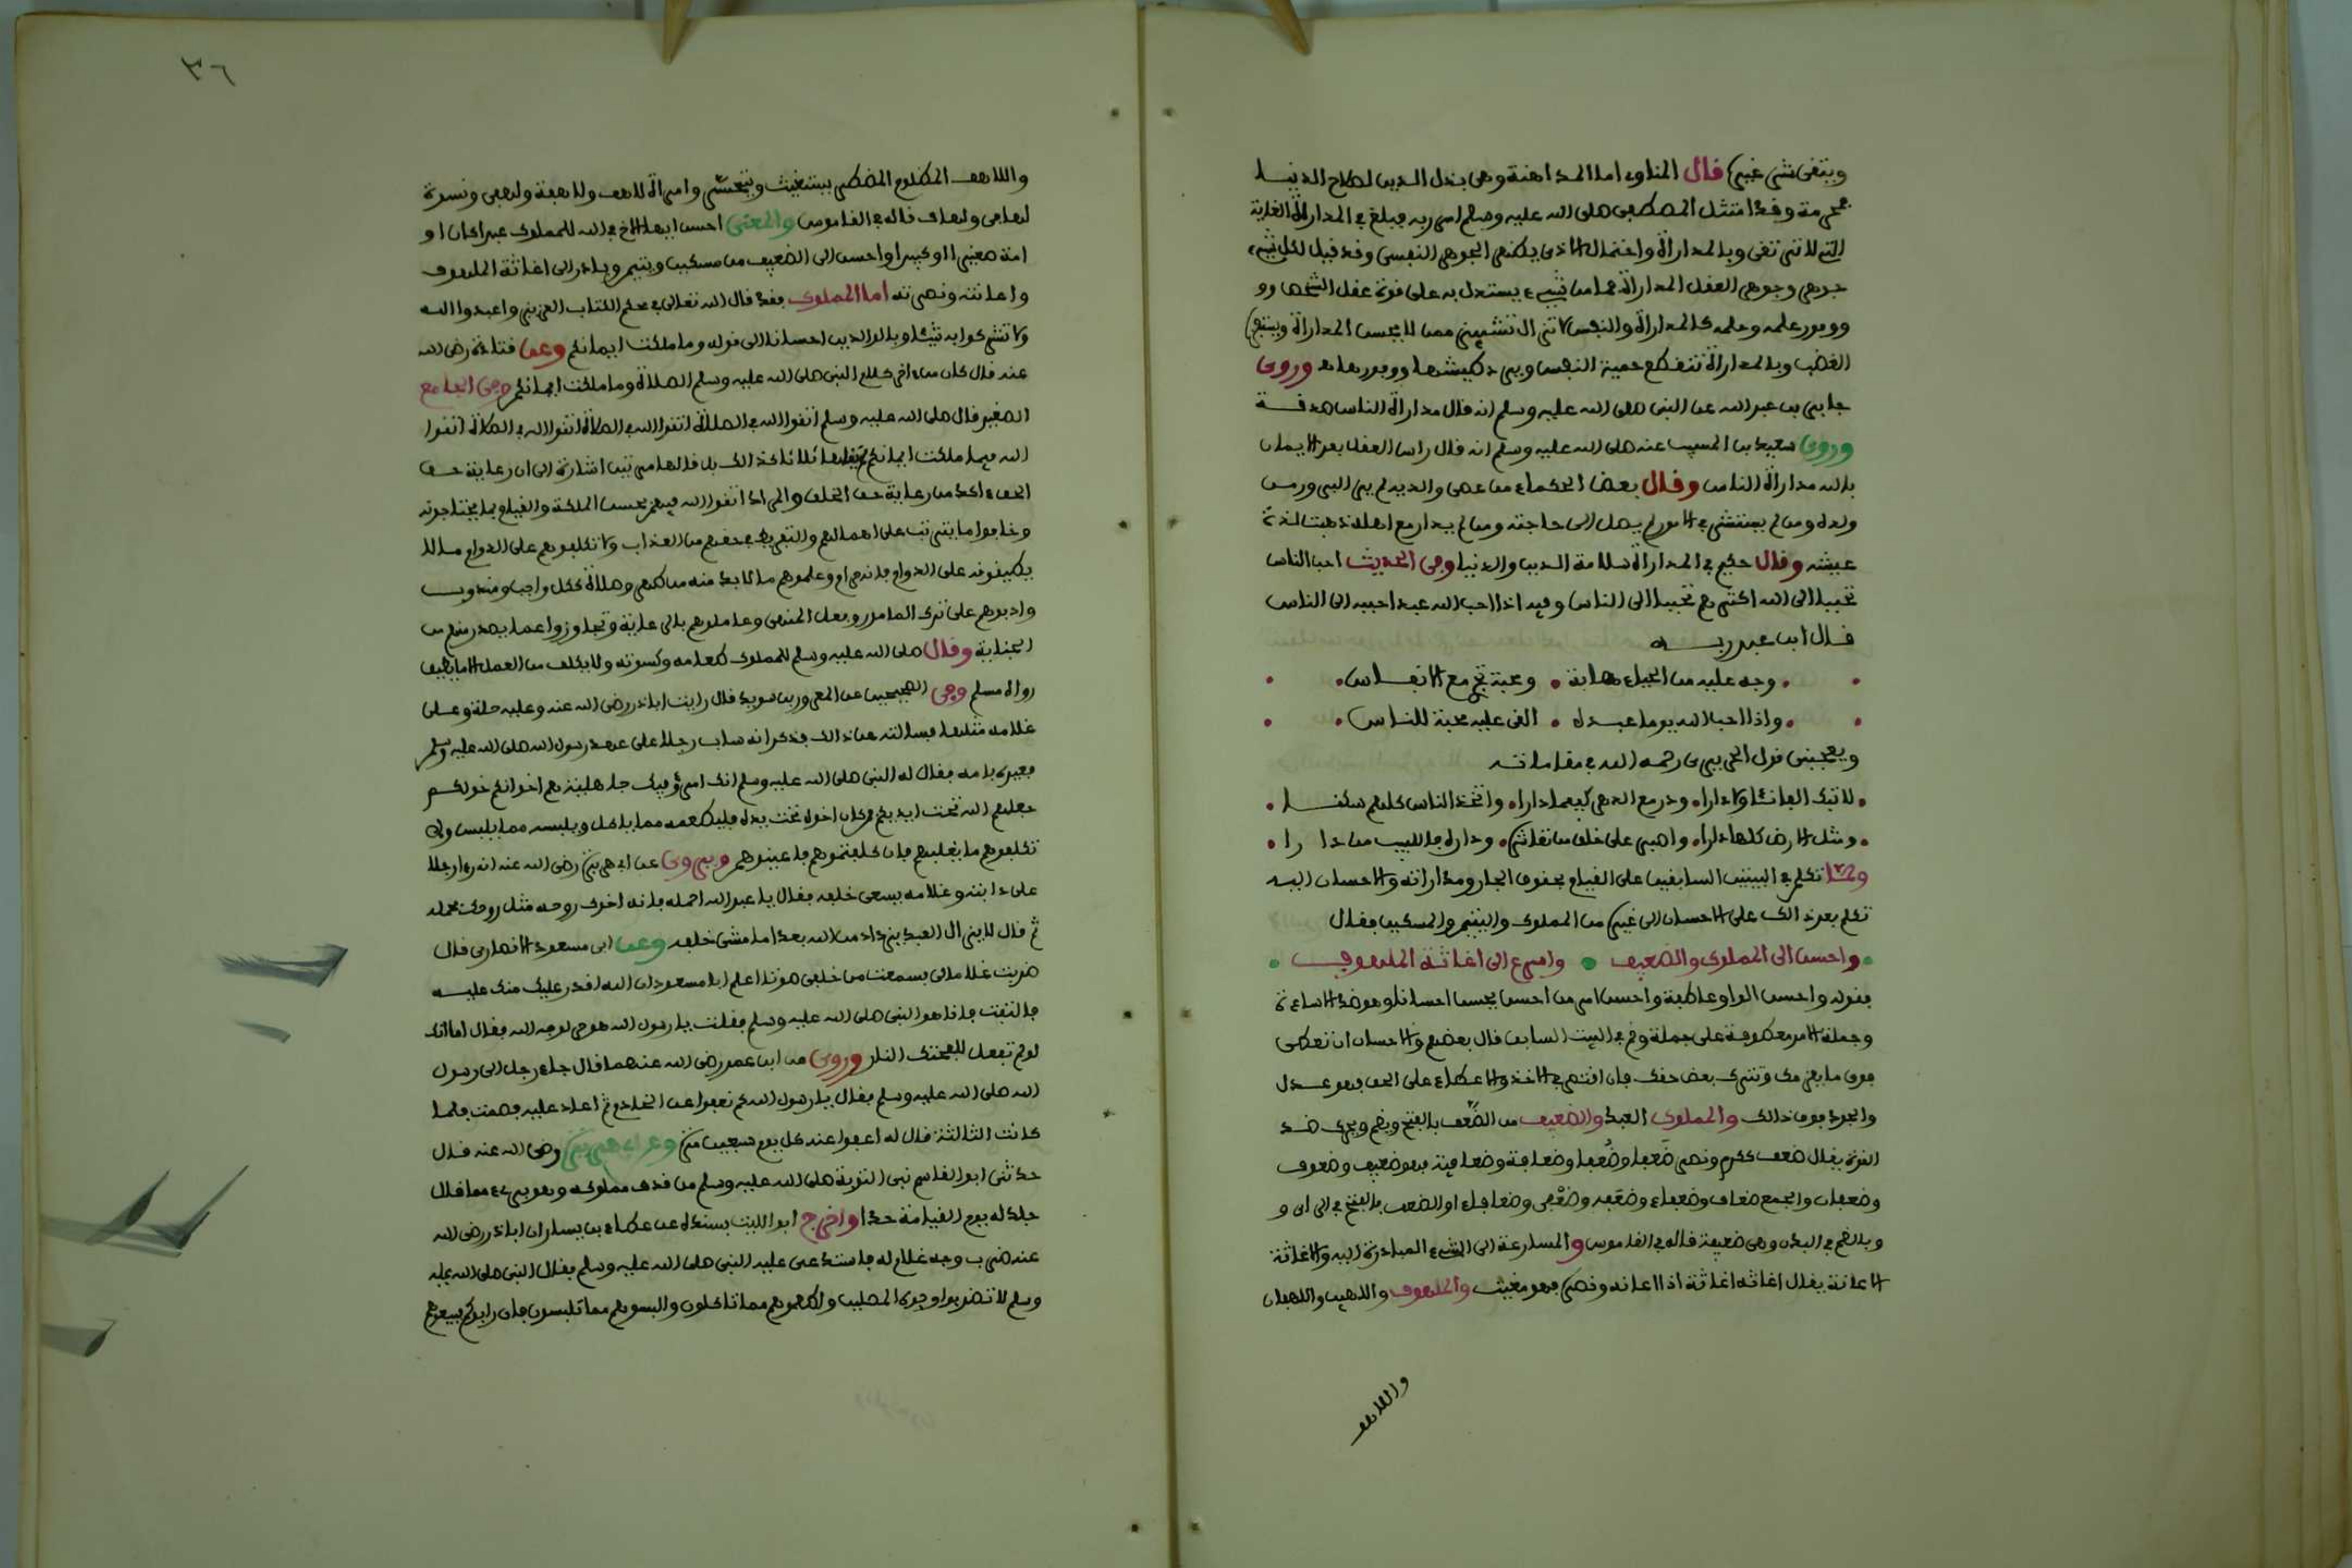 ويتقى شر غيره قال المناوى اما المداهنة وهى بذل الدين لصلاح الدنيا
محرمة وقد امتثل المصطفى صلى الله عليه وسلم امر ربه فبلغ فى المداراة الغاية
التى لا ترتقى وبالمداراة واحتمال الاذى يظهر الجوهر النفسى وقد قيل لكل شىء
جوهر وجوهر العقل المداراة فما من شىء يستدل به على قوة عقل الشخص و
ووفور علمه وحلمه كالمداراة والنفس لا تزال تشمئز ممن لا يحسن المداراة ويستفزها
الغضب وبالمداراة تنقطع حمية النفس ويرد طيشها ونفورها وروى
جابر بن عبد الله عن النبى صلى الله عليه وسلم انه قال مداراة الناس صدقة
وروى سعيد بن المسيب عنه صلى الله عليه وسلم انه قال راس العقل بعد الايمان
بالله مداراة الناس وقال بعض الحكماء من عصى والديه لم ير البر ومن
ولده ومن لم يستشر فى الامور لم يصل الى حاجته ومن لم يدار مع اهله ذهبت لذة
عيشه وقال حكيم فى المداراة سلامة الدين والدنيا وفى الحديث احب الناس
تحببا الى الله اكثرهم تحببا الى الناس وفيه اذا احب الله عبدا حببه الى الناس
قال ابن عبد ربه
وجه عليه من الحياء مهابة • ومحبة تجرى مع الانفاس
واذا احب الله يوما عبده • القى عليه محبة للناس
ويعجبنى قول الحريرى رحمه الله فى مقاماته
لا تبك الفا نئا ولا دارا • ودر مع الدهر كيفما دارا • واتخذ الناس كلهم سكنا
ومثل الارض كلها دارا • واصبر على خلق من تعاشره • وداره فاللبيب من دارا
ولما تكلم فى البيتين السابقين على القيام بحقوق الجار ومداراته والاحسان اليه
تكلم بعد ذالك على الاحسان الى غيره من المملوك واليتيم والمسكين فقال
واحسن الى المملوك والضعيف • واسرع الى اغاثة الملهوف
فقوله واحسن الواو عاطفة واحسن امر من احسن يحسن احسانا وهو ضد الاساءة
وجملة الامر معطوفة على جملة وقم فى البيت السابق قال بعضهم والاحسان ان تعطى
فوق ما يلزمك وتترك بعض حقك فان اقتصر فى الاخذ والاعطاء على الحق فهو عدل
والجود فوق ذالك والمملوك العبد والضعيف من الضعف بالفتح ويضم ويحرك ضد
القوة يقال ضعف ككرم ونصر ضَعفا وضُعفا وضعافة وضعافية فهو ضعيف وضعوف
وضعفان والجمع ضعاف وضعفاء وضعفة وضعفى وضعافاء او الضعف بالفتح فى الراى و
وبالضم فى البدن وهى ضعيفة قاله فى القاموس والمسارعة الى الشىء المبادرة اليه والاغاثة
الاعانة يقال اغاثه اغاثة اذا اعانه ونصره فهو مغيث والملهوف واللهيف واللهفان
واللاهف
٣٦
واللاهف المظلوم المضطر يستغيث ويتحسر وامراة لاهف ولاهفة ولهفى ونسوة
لهافى ولهاف قاله فى القاموس والمعنى احسن ايها الاخ فى الله للمملوك عبدا كان او
امة صغيرا او كبيرا واحسن الى الضعيف من مسكين ويتيم وبادر الى اغاثة الملهوف
واعانته ونصرته اما المملوك فقد قال الله تعالى فى محكم الكتاب العزيز واعبدوا الله
ولا تشركوا به شيئا وبالوالدين احسانا الى قوله وما ملكت ايمانكم وعن قتادة رضى الله
عنه قال كان من اخر كلام النبى صلى الله عليه وسلم الصلاة وما ملكت ايمانكم وفى الجامع
الصغير قال صلى الله عليه وسلم اتقوا الله فى الصلاة اتقوا الله فى الصلاة اتقوا الله فى الصلاة اتقوا
الله فيما ملكت ايمانكم قالها ثلاثا كذالك بل قالها مرتين اشارة الى ان رعاية حق
الحق اكد من رعاية حق الخلق والمراد اتقوا الله فيهم بحسن الملكة والقيام بما يحتاجونه
وخافوا ما يترتب على اهمالهم والتفريط فى حقهم من العذاب ولا تكلفوهم على الدوام ما لا
يطيقونه على الدوام فانه حرام وعلموهم ما لا بد منه من طهر وصلاة ككل واجب ومندوب
وادبوهم على ترك المامور وفعل المنهى وعاملوهم بالرعاية وتجاوزوا عما يصدر منهم من
الجناية وقال صلى الله عليه وسلم للمملوك طعامه وكسوته ولا يكلف من العمل الا ما يطيق
رواه مسلم وفى الصحيحين عن المعرور بن سويد قال رايت ابا ذر رضى الله عنه وعليه حلة وعلى
غلامه مثلها فسالته عن ذالك فذكر انه ساب رجلا على عهد رسول الله صلى الله عليه وسلم
فعيره بامه فقال له النبى صلى الله عليه وسلم انك امرؤ فيك جاهلية هم اخوانكم خولكم
جعلهم الله تحت ايديكم فمن كان اخوه تحت يده فليطعمه مما ياكل ويلبسه مما يلبس ولا
تكلفوهم ما يغلبهم فان كلفتموهم فاعينوهم ويروى عن ابى هريرة رضى الله عنه انه راى رجلا
على دابته وغلامه يسعى خلفه فقال يا عبد الله احمله فانه اخوك روحه مثل روحك فحمله
ثم قال لا يزال العبد يزداد من الله بعدا ما مشى خلفه وعن ابى مسعود الانصارى قال
ضربت غلاما لى فسمعت من خلفى صوتا اعلم ابا مسعود ان الله اقدر عليك منك عليه
فالتفت فاذا هو النبى صلى الله عليه وسلم فقلت يا رسول الله هو حر لوجه الله فقال اما انك
لو لم تفعل للفحتك النار وروى عن ابن عمر رضى الله عنهما قال جاء رجل الى رسول
الله صلى الله عليه وسلم فقال يا رسول الله كم نعفوا عن الخادم ثم اعاد عليه فصمت فلما
كانت الثالثة قال له اعفوا عنه كل يوم سبعين مرة وعن ابى هريرة رضى الله عنه قال
حدثنى ابو القاسم نبى التوبة صلى الله عليه وسلم من قذف مملوكه وهو برىء مما قال
جلد له يوم القيامة حدا واخرج ابو الليث بسنده عن عطاء بن يسار ان ابا ذر رضى الله
عنه ضرب وجه غلام له فاستدعى عليه النبى صلى الله عليه وسلم فقال النبى صلى الله عليه
وسلم لا تضربوا وجوه المصلين واطعموهم مما تاكلون والبسوهم مما تلبسون فان رابوكم فبيعوهم